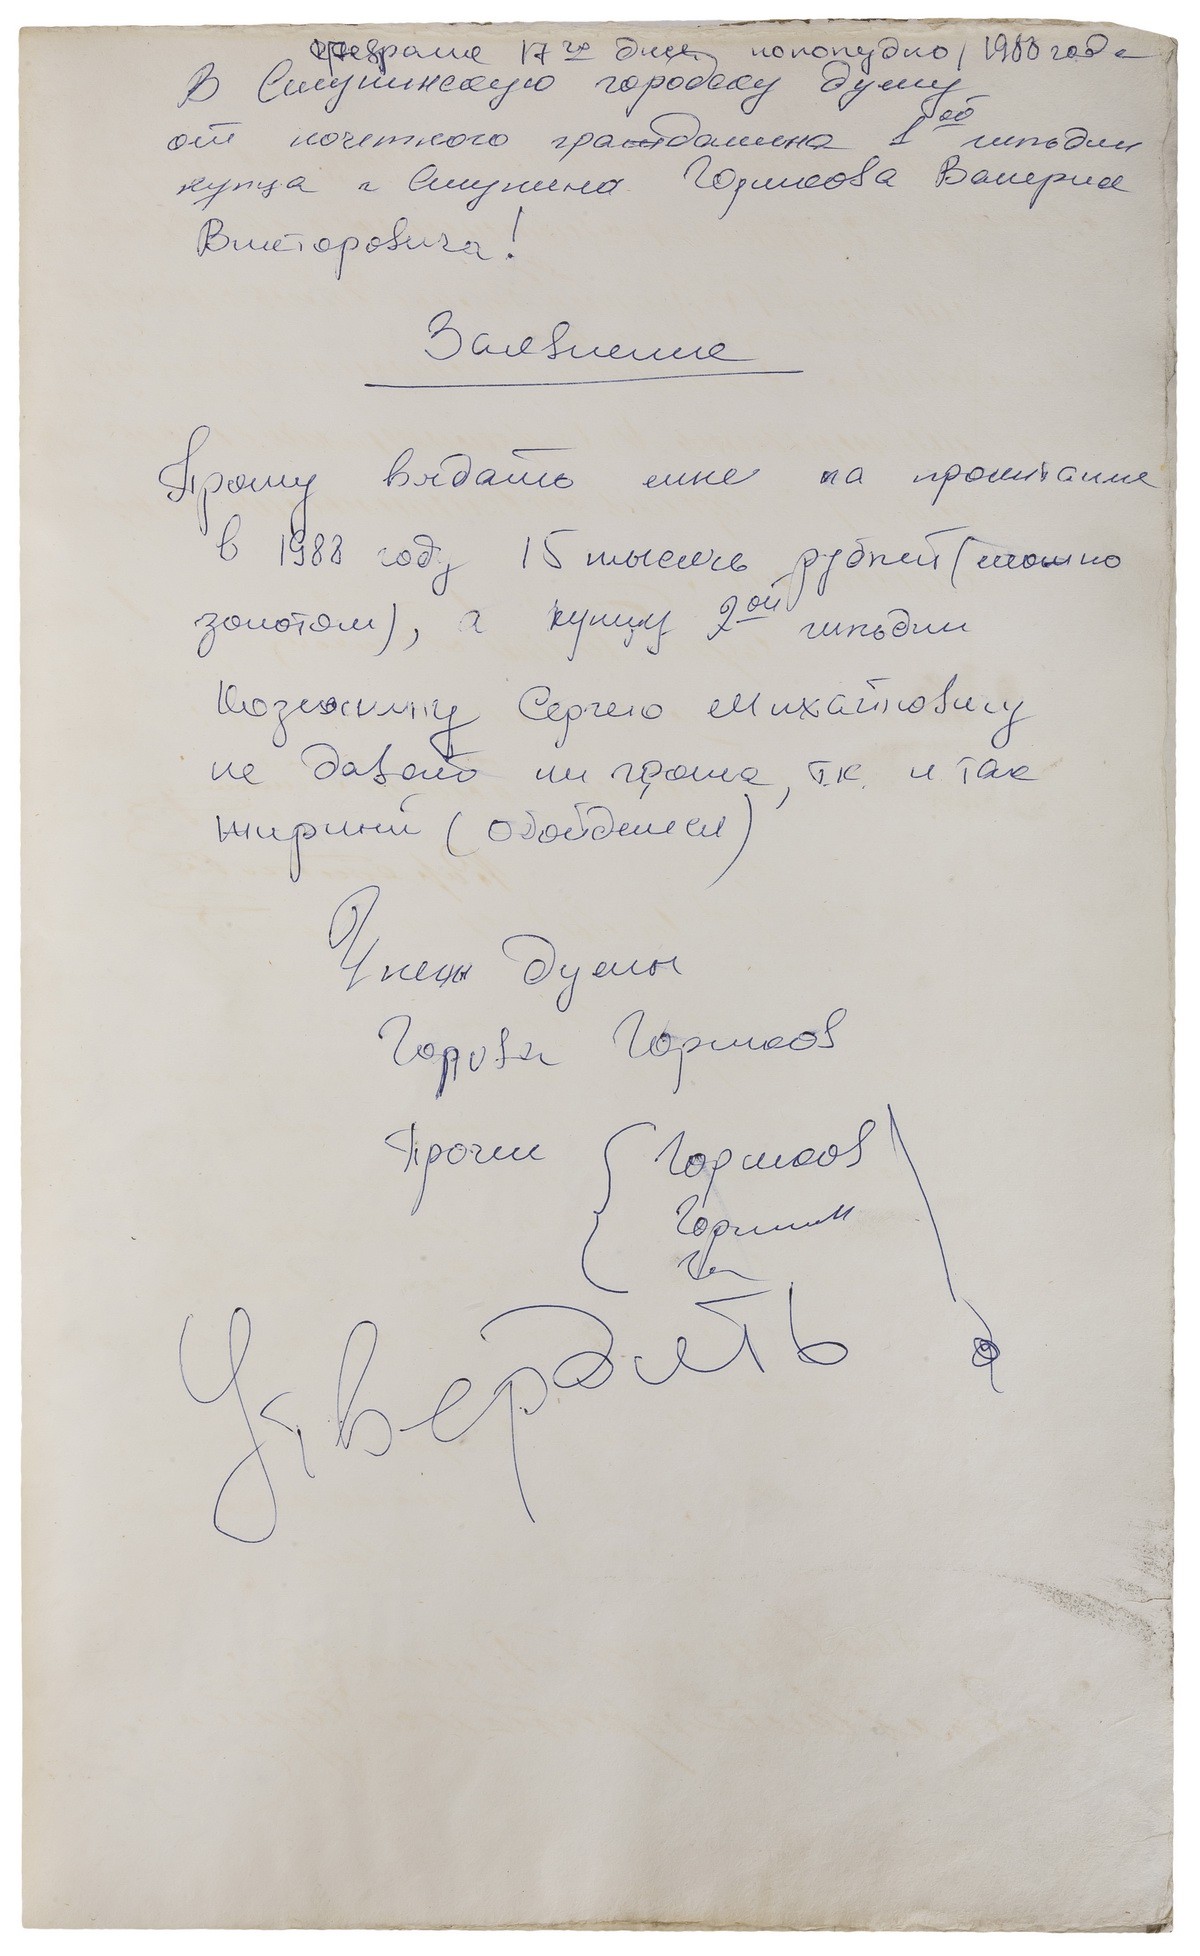 февраля 17го дня пополудно, 1988 года
В Ступинскую городску думу
от почетного гражданина 1ой гильдии
купца г. Ступина Горшкова Валерия
Викторовича!
Заявление
Прошу выдать мне на пропитание
в 1988 году 15 тысячь рублей (можно
золотом), а купцу 2ой гильдии
Сергею Михайловичу
не давать ни гроша, т.к. и так
жирный (обойдется)
Члены Думы
Голова Горшков
Прочие { Горшков
Горшков
Го
Утвердить